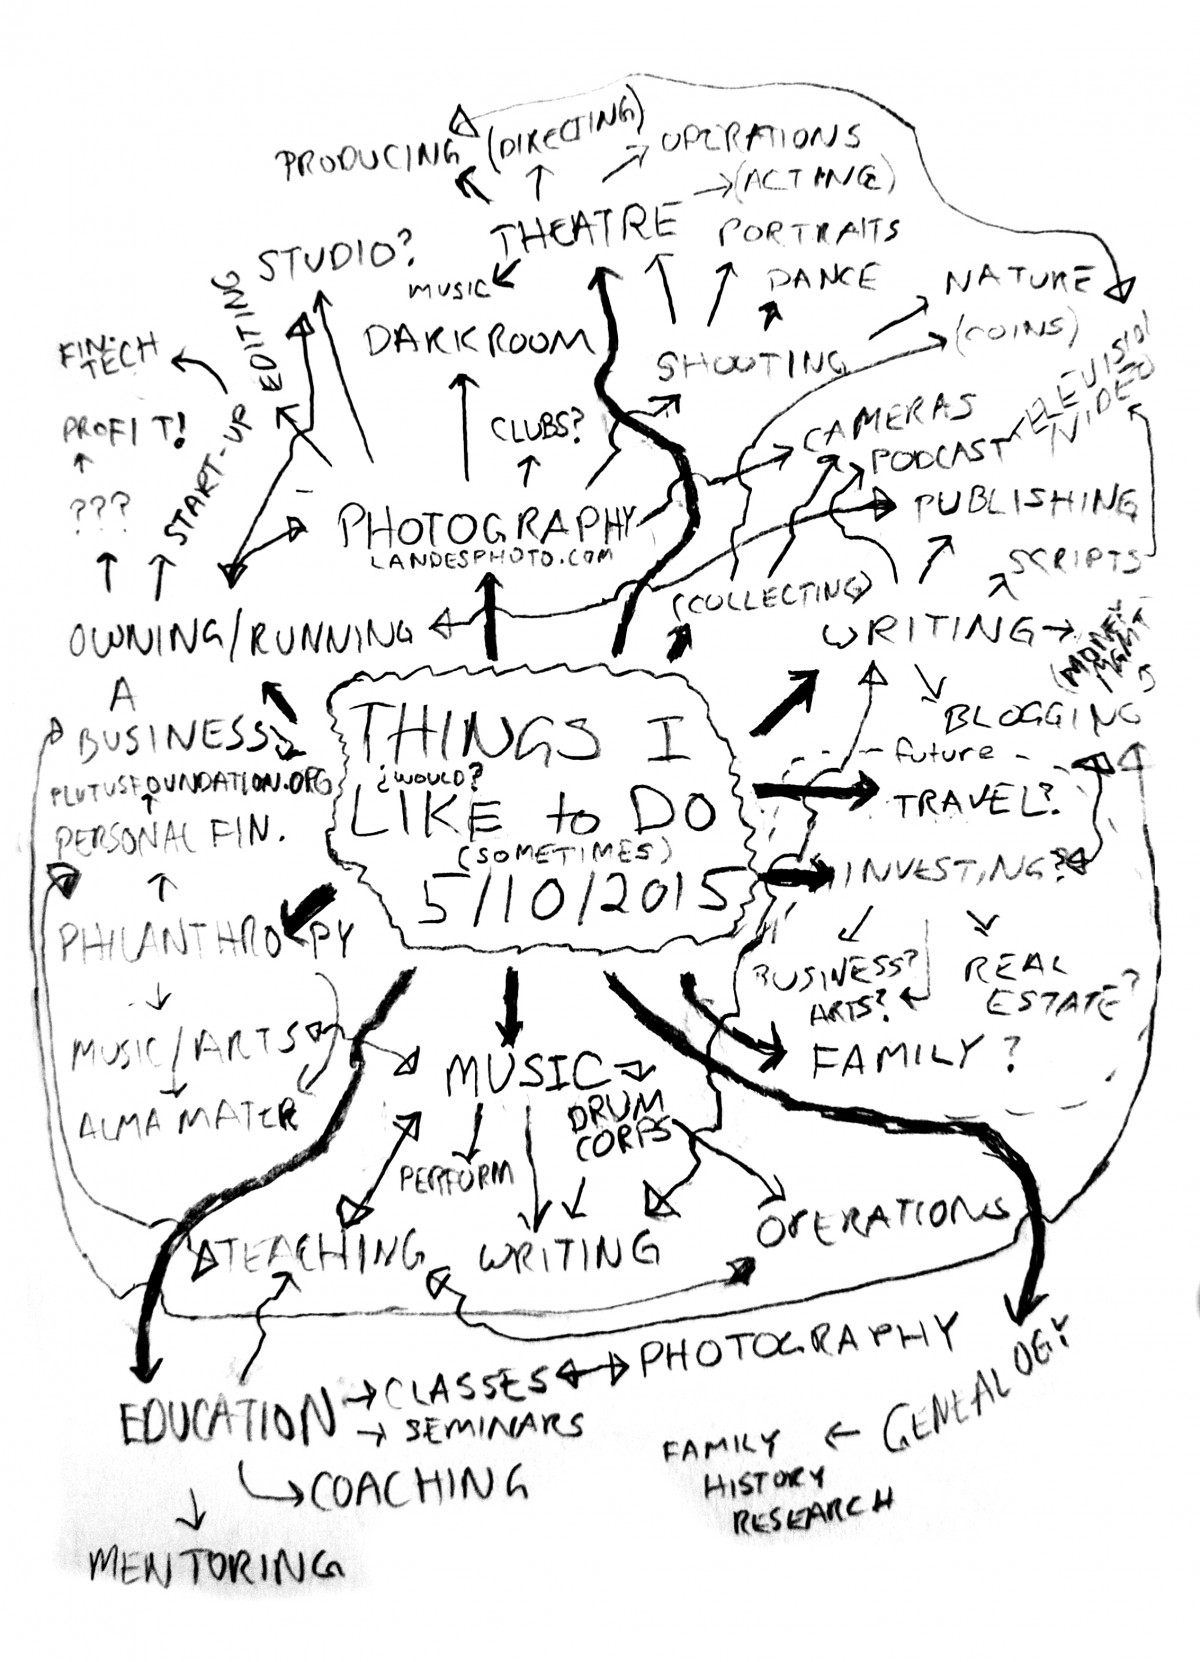 PRODUCING
(DIRECTING)
OPERATIONS
(ACTING)
THEATRE
PORTRAITS
STUDIO?
MUSIC
DANCE
NATURE
(COINS)
EDITING
DARKROOM
SHOOTING
FIN-TECH
TELEVISION
VIDEO
PROFIT!
CLUBS?
CAMERAS
PODCAST
START-UP
???
PHOTOGRAPHY
LANDESPHOTO.COM
PUBLISHING
SCRIPTS
(COLLECTING)
OWNING/RUNNING
A
BUSINESS
WRITING
(MONEY
MGMT
BLOGGING
THINGS I
¿WOULD?
LIKE to DO
(SOMETIMES)
5/10/2015
future
TRAVEL?
PLUTUSFOUNDATION.ORG
PERSONAL FIN.
INVESTING?
PHILANTHROPY
BUSINESS?
ARTS?
REAL
ESTATE?
MUSIC/ARTS
ALMA MATER
MUSIC
FAMILY?
DRUM
CORPS
PERFORM
TEACHING
WRITING
OPERATIONS
EDUCATION
CLASSES
PHOTOGRAPHY
SEMINARS
COACHING
MENTORING
GENEALOGY
FAMILY
HISTORY
RESEARCH